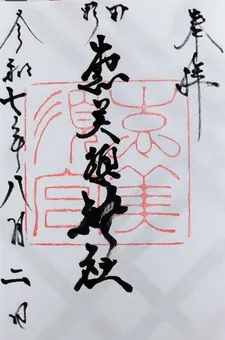 奉拝
野田
恵美須神社
恵美須宮
令和七年八月二日